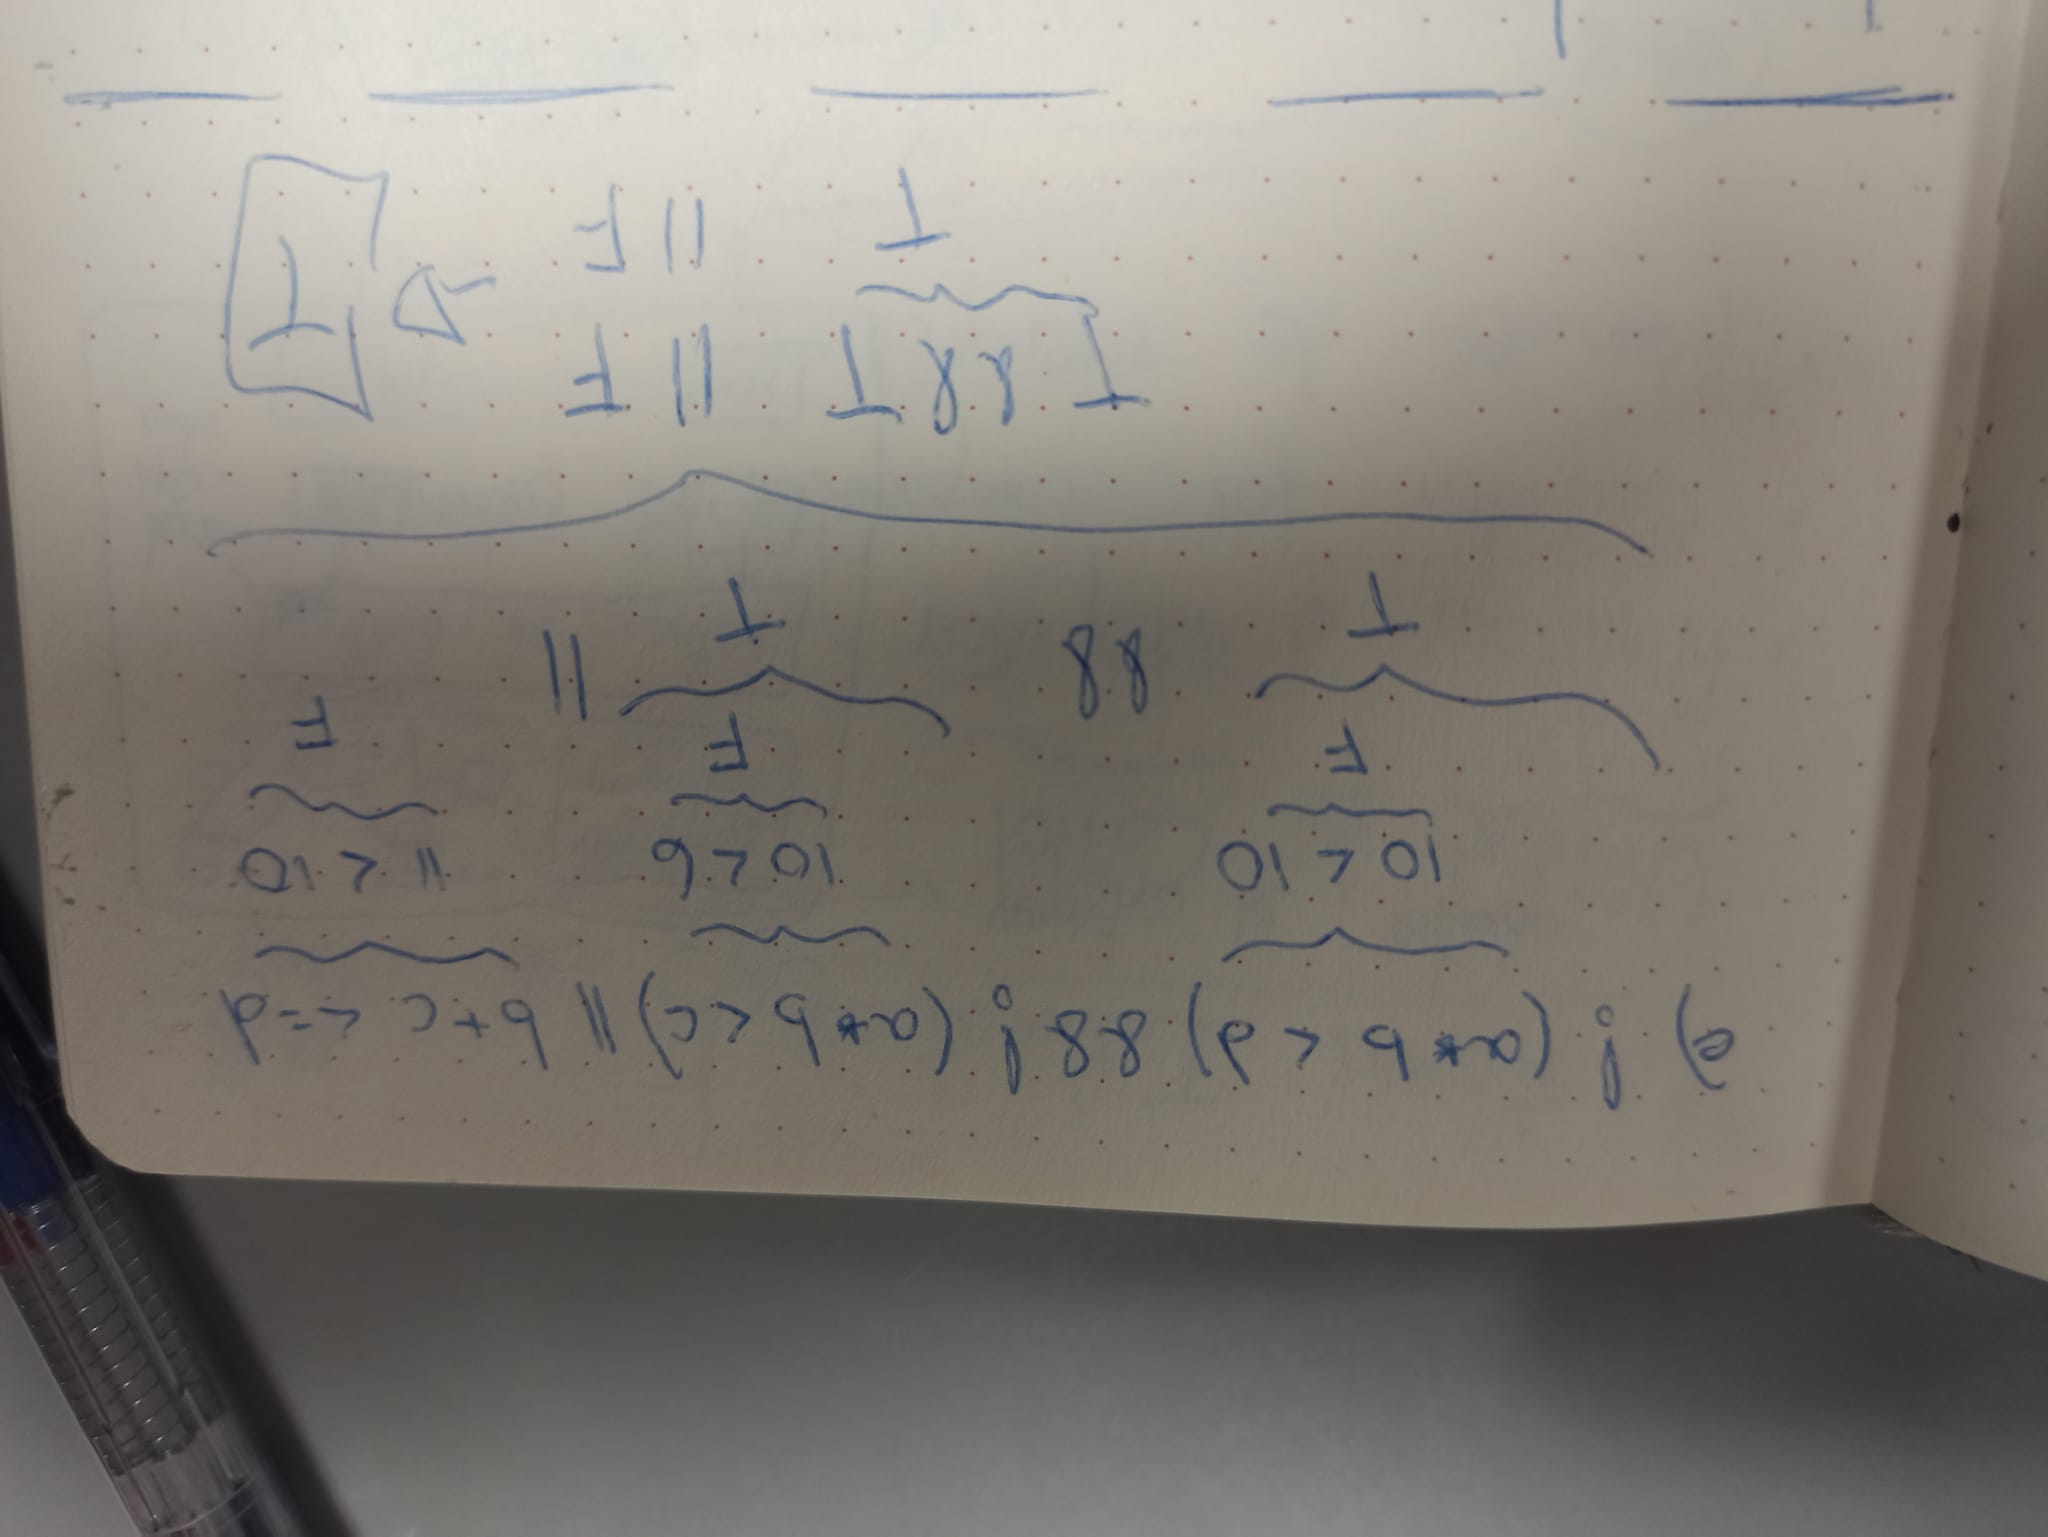 e) ! (a*b < d) && ! (a*b < c) || b+c <= d
10 < 10 10 < 6 11 < 10
F F F
T && T ||
T && T || F
T || F → T